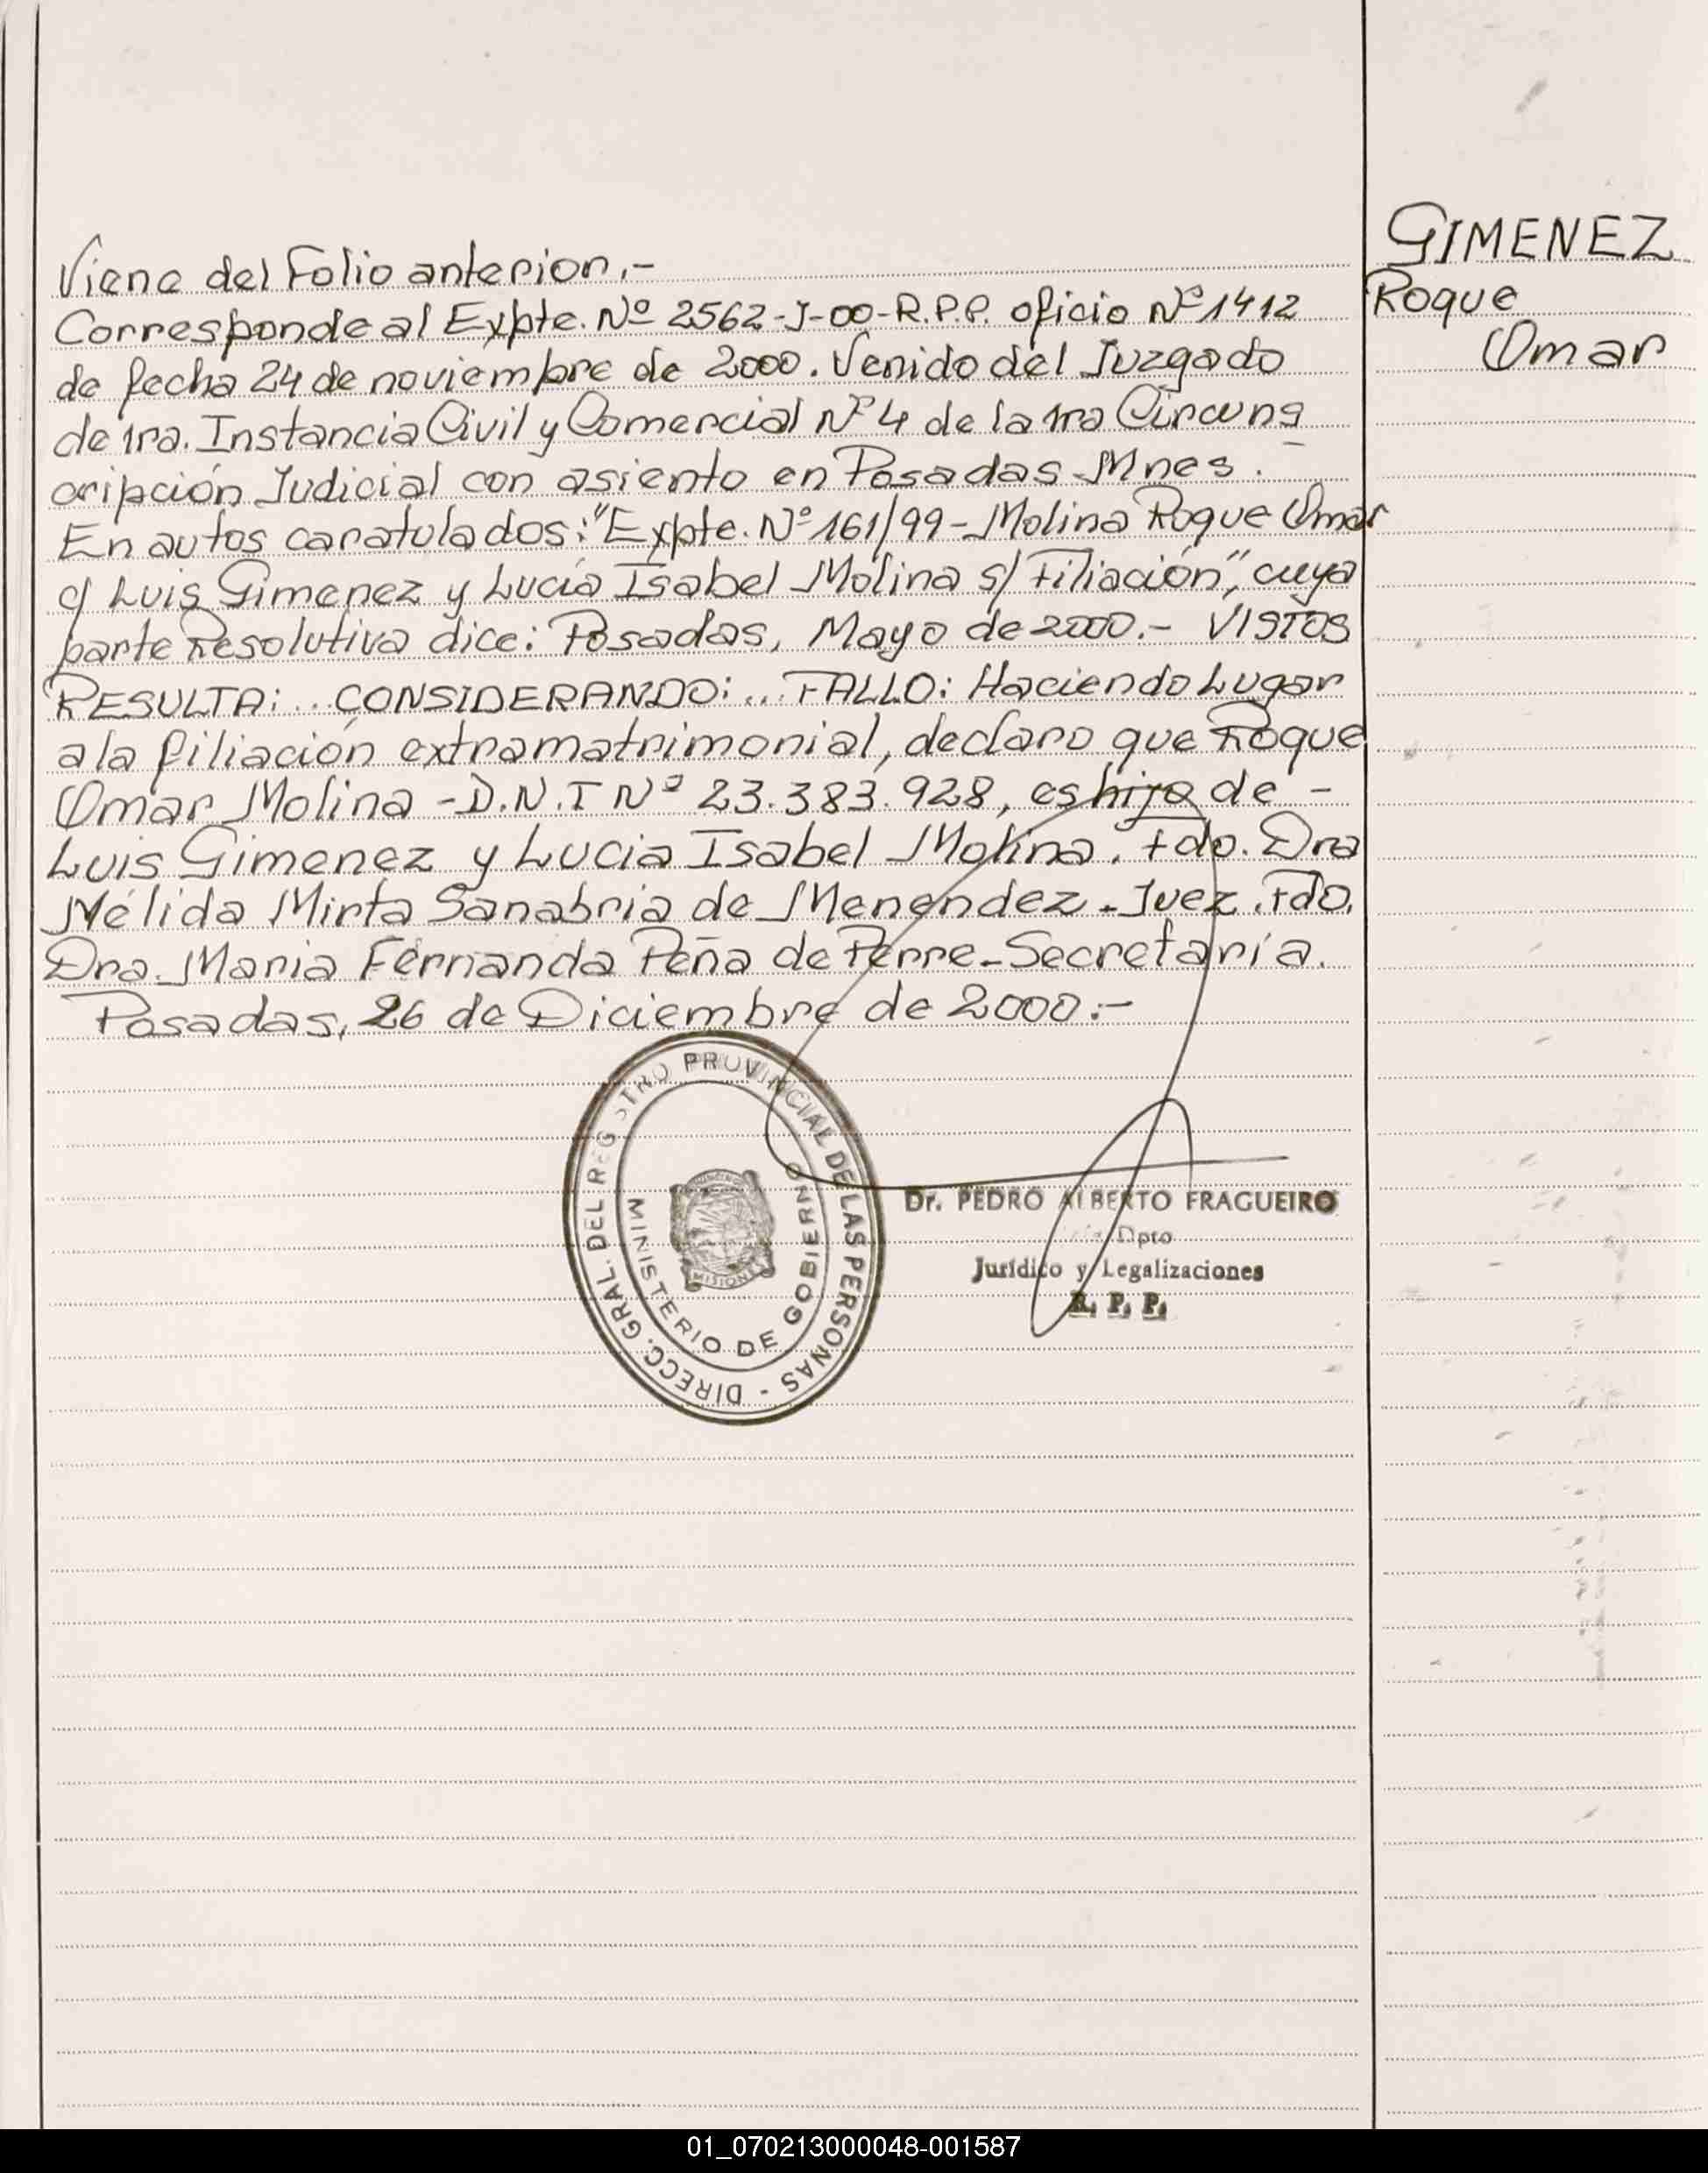 Viene del Folio anterior.-
Corresponde al Expte. Nº 2562-J-00-R.P.P. oficio Nº 1412
de fecha 24 de noviembre de 2000. Venido del Juzgado
de 1ra. Instancia Civil y Comercial Nº 4 de la 1ra Circuns
cripción Judicial con asiento en Posadas-Mnes.
En autos caratulados: "Expte. Nº 161/99 - Molina Roque Omar
c/ Luis Gimenez y Lucía Isabel Molina s/ Filiación", cuya
parte Resolutiva dice: Posadas, Mayo de 2000.- VISTOS
RESULTA: .. CONSIDERANDO: ... FALLO: Haciendo Lugar
a la filiación extramatrimonial, declaro que Roque
Omar Molina - D.N.I Nº 23.383.928, es hijo de -
Luis Gimenez y Lucia Isabel Molina. Fdo. Dra
Mélida Mirta Sanabria de Menendez - Juez. Fdo.
Dra. Maria Fernanda Peña de Perre - Secretaría.
Posadas, 26 de Diciembre de 2000.-
GIMENEZ
Roque
Omar
DIRECC. GRAL. DEL REGISTRO PROVINCIAL DE LAS PERSONAS -
MINISTERIO DE GOBIERNO
MISIONES
Dr. PEDRO ALBERTO FRAGUEIRO
Dpto
Jurídico y Legalizaciones
R. P. P.
01_070213000048-001587